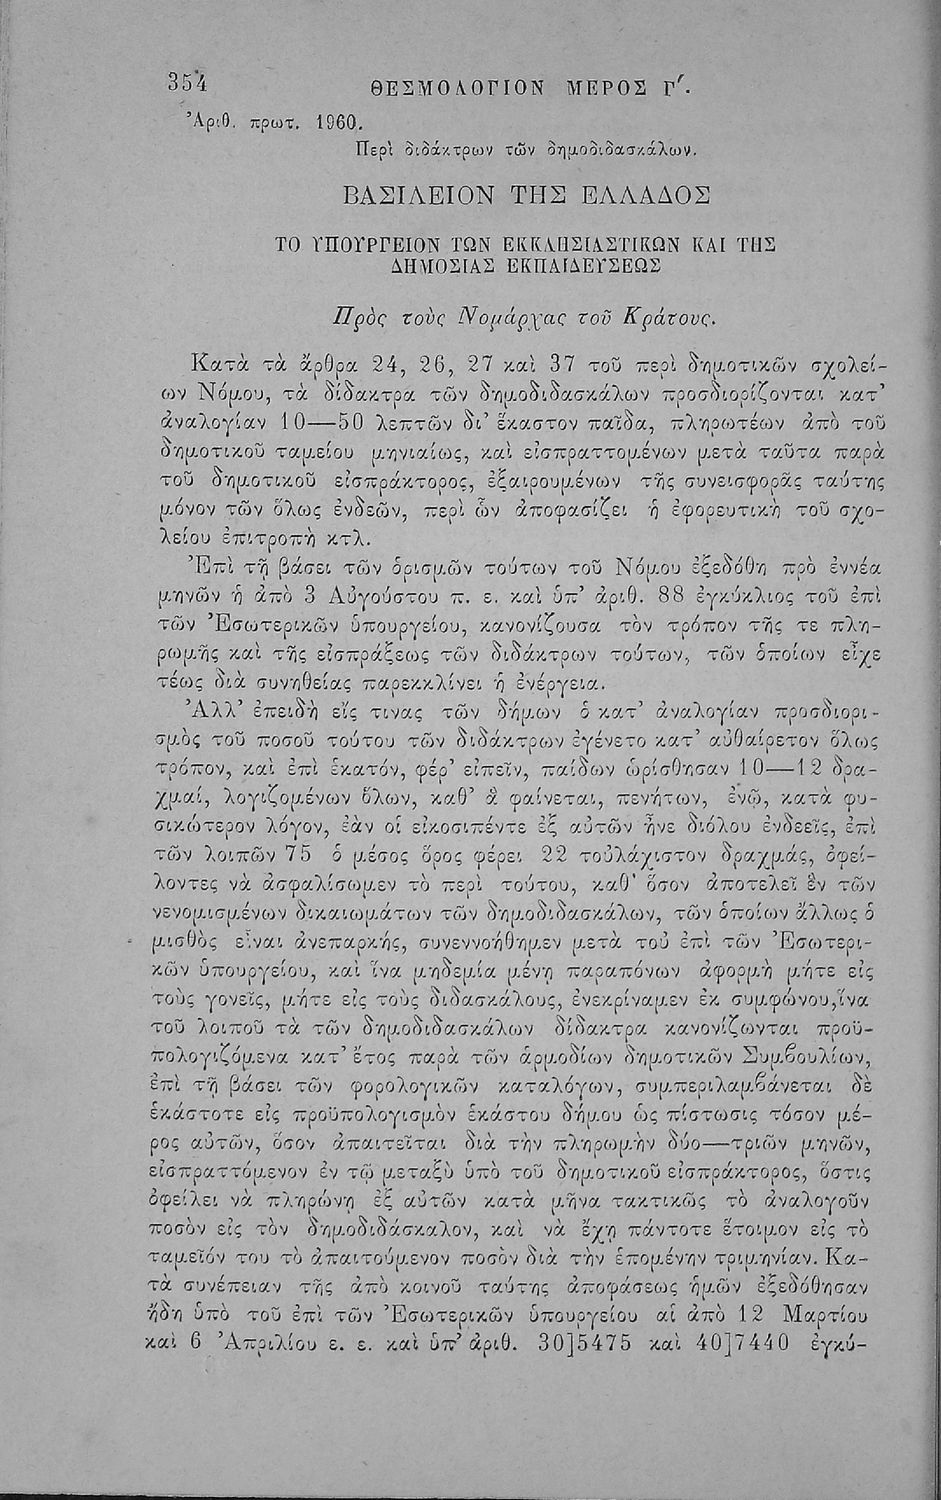 354
ΘΕΣΜΟΛΟΓΙΟΝ ΜΕΡΟΣ Γ΄.
Ἀριθ. πρωτ. 1960.
Περὶ διδάκτρων τῶν δημοδιδασκάλων.
ΒΑΣΙΛΕΙΟΝ ΤΗΣ ΕΛΛΑΔΟΣ
ΤΟ ΥΠΟΥΡΓΕΙΟΝ ΤΩΝ ΕΚΚΛΗΣΙΑΣΤΙΚΩΝ ΚΑΙ ΤΗΣ
ΔΗΜΟΣΙΑΣ ΕΚΠΑΙΔΕΥΣΕΩΣ
Πρὸς τοὺς Νομάρχας τοῦ Κράτους.
Κατὰ τὰ ἄρθρα 24, 26, 27 καὶ 37 τοῦ περὶ δημοτικῶν σχολεί-
ων Νόμου, τὰ δίδακτρα τῶν δημοδιδασκάλων προσδιορίζονται κατ'
ἀναλογίαν 10—50 λεπτῶν δι' ἕκαστον παῖδα, πληρωτέων ἀπὸ τοῦ
δημοτικοῦ ταμείου μηνιαίως, καὶ εἰσπραττομένων μετὰ ταῦτα παρὰ
τοῦ δημοτικοῦ εἰσπράκτορος, ἐξαιρουμένων τῆς συνεισφορᾶς ταύτης
μόνον τῶν ὅλως ἐνδεῶν, περὶ ὧν ἀποφασίζει ἡ ἐφορευτικὴ τοῦ σχο-
λείου ἐπιτροπὴ κτλ.
Ἐπὶ τῇ βάσει τῶν ὁρισμῶν τούτων τοῦ Νόμου ἐξεδόθη πρὸ ἐννέα
μηνῶν ἡ ἀπὸ 3 Αὐγούστου π. ε. καὶ ὑπ' ἀριθ. 88 ἐγκύκλιος τοῦ ἐπὶ
τῶν Ἐσωτερικῶν ὑπουργείου, κανονίζουσα τὸν τρόπον τῆς τε πλη-
ρωμῆς καὶ τῆς εἰσπράξεως τῶν διδάκτρων τούτων, τῶν ὁποίων εἶχε
τέως διὰ συνηθείας παρεκκλίνει ἡ ἐνέργεια.
Ἀλλ' ἐπειδὴ εἴς τινας τῶν δήμων ὁ κατ' ἀναλογίαν προσδιορι-
σμὸς τοῦ ποσοῦ τούτου τῶν διδάκτρων ἐγένετο κατ' αὐθαίρετον ὅλως
τρόπον, καὶ ἐπὶ ἑκατόν, φέρ' εἰπεῖν, παίδων ὡρίσθησαν 10—12 δρα-
χμαί, λογιζομένων ὅλων, καθ' ἃ φαίνεται, πενήτων, ἐνῷ, κατὰ φυ-
σικώτερον λόγον, ἐὰν οἱ εἰκοσιπέντε ἐξ αὐτῶν ἦνε διόλου ἐνδεεῖς, ἐπὶ
τῶν λοιπῶν 75 ὁ μέσος ὅρος φέρει 22 τοὐλάχιστον δραχμάς, ὀφεί-
λοντες νὰ ἀσφαλίσωμεν τὸ περὶ τούτου, καθ' ὅσον ἀποτελεῖ ἓν τῶν
νενομισμένων δικαιωμάτων τῶν δημοδιδασκάλων, τῶν ὁποίων ἄλλως ὁ
μισθὸς εἶναι ἀνεπαρκής, συνεννοήθημεν μετὰ τοῦ ἐπὶ τῶν Ἐσωτερι-
κῶν ὑπουργείου, καὶ ἵνα μηδεμία μένῃ παραπόνων ἀφορμὴ μήτε εἰς
τοὺς γονεῖς, μήτε εἰς τοὺς διδασκάλους, ἐνεκρίναμεν ἐκ συμφώνου, ἵνα
τοῦ λοιποῦ τὰ τῶν δημοδιδασκάλων δίδακτρα κανονίζωνται προϋ-
πολογιζόμενα κατ' ἔτος παρὰ τῶν ἁρμοδίων δημοτικῶν Συμβουλίων,
ἐπὶ τῇ βάσει τῶν φορολογικῶν καταλόγων, συμπεριλαμβάνεται δὲ
ἑκάστοτε εἰς προϋπολογισμὸν ἑκάστου δήμου ὡς πίστωσις τόσον μέ-
ρος αὐτῶν, ὅσον ἀπαιτεῖται διὰ τὴν πληρωμὴν δύο—τριῶν μηνῶν,
εἰσπραττόμενον ἐν τῷ μεταξὺ ὑπὸ τοῦ δημοτικοῦ εἰσπράκτορος, ὅστις
ὀφείλει νὰ πληρώνῃ ἐξ αὐτῶν κατὰ μῆνα τακτικῶς τὸ ἀναλογοῦν
ποσὸν εἰς τὸν δημοδιδάσκαλον, καὶ νὰ ἔχῃ πάντοτε ἕτοιμον εἰς τὸ
ταμεῖόν του τὸ ἀπαιτούμενον ποσὸν διὰ τὴν ἑπομένην τριμηνίαν. Κα-
τὰ συνέπειαν τῆς ἀπὸ κοινοῦ ταύτης ἀποφάσεως ἡμῶν ἐξεδόθησαν
ἤδη ὑπὸ τοῦ ἐπὶ τῶν Ἐσωτερικῶν ὑπουργείου αἱ ἀπὸ 12 Μαρτίου
καὶ 6 Ἀπριλίου ε. ε. καὶ ὑπ' ἀριθ. 30]5475 καὶ 40]7440 ἐγκύ-